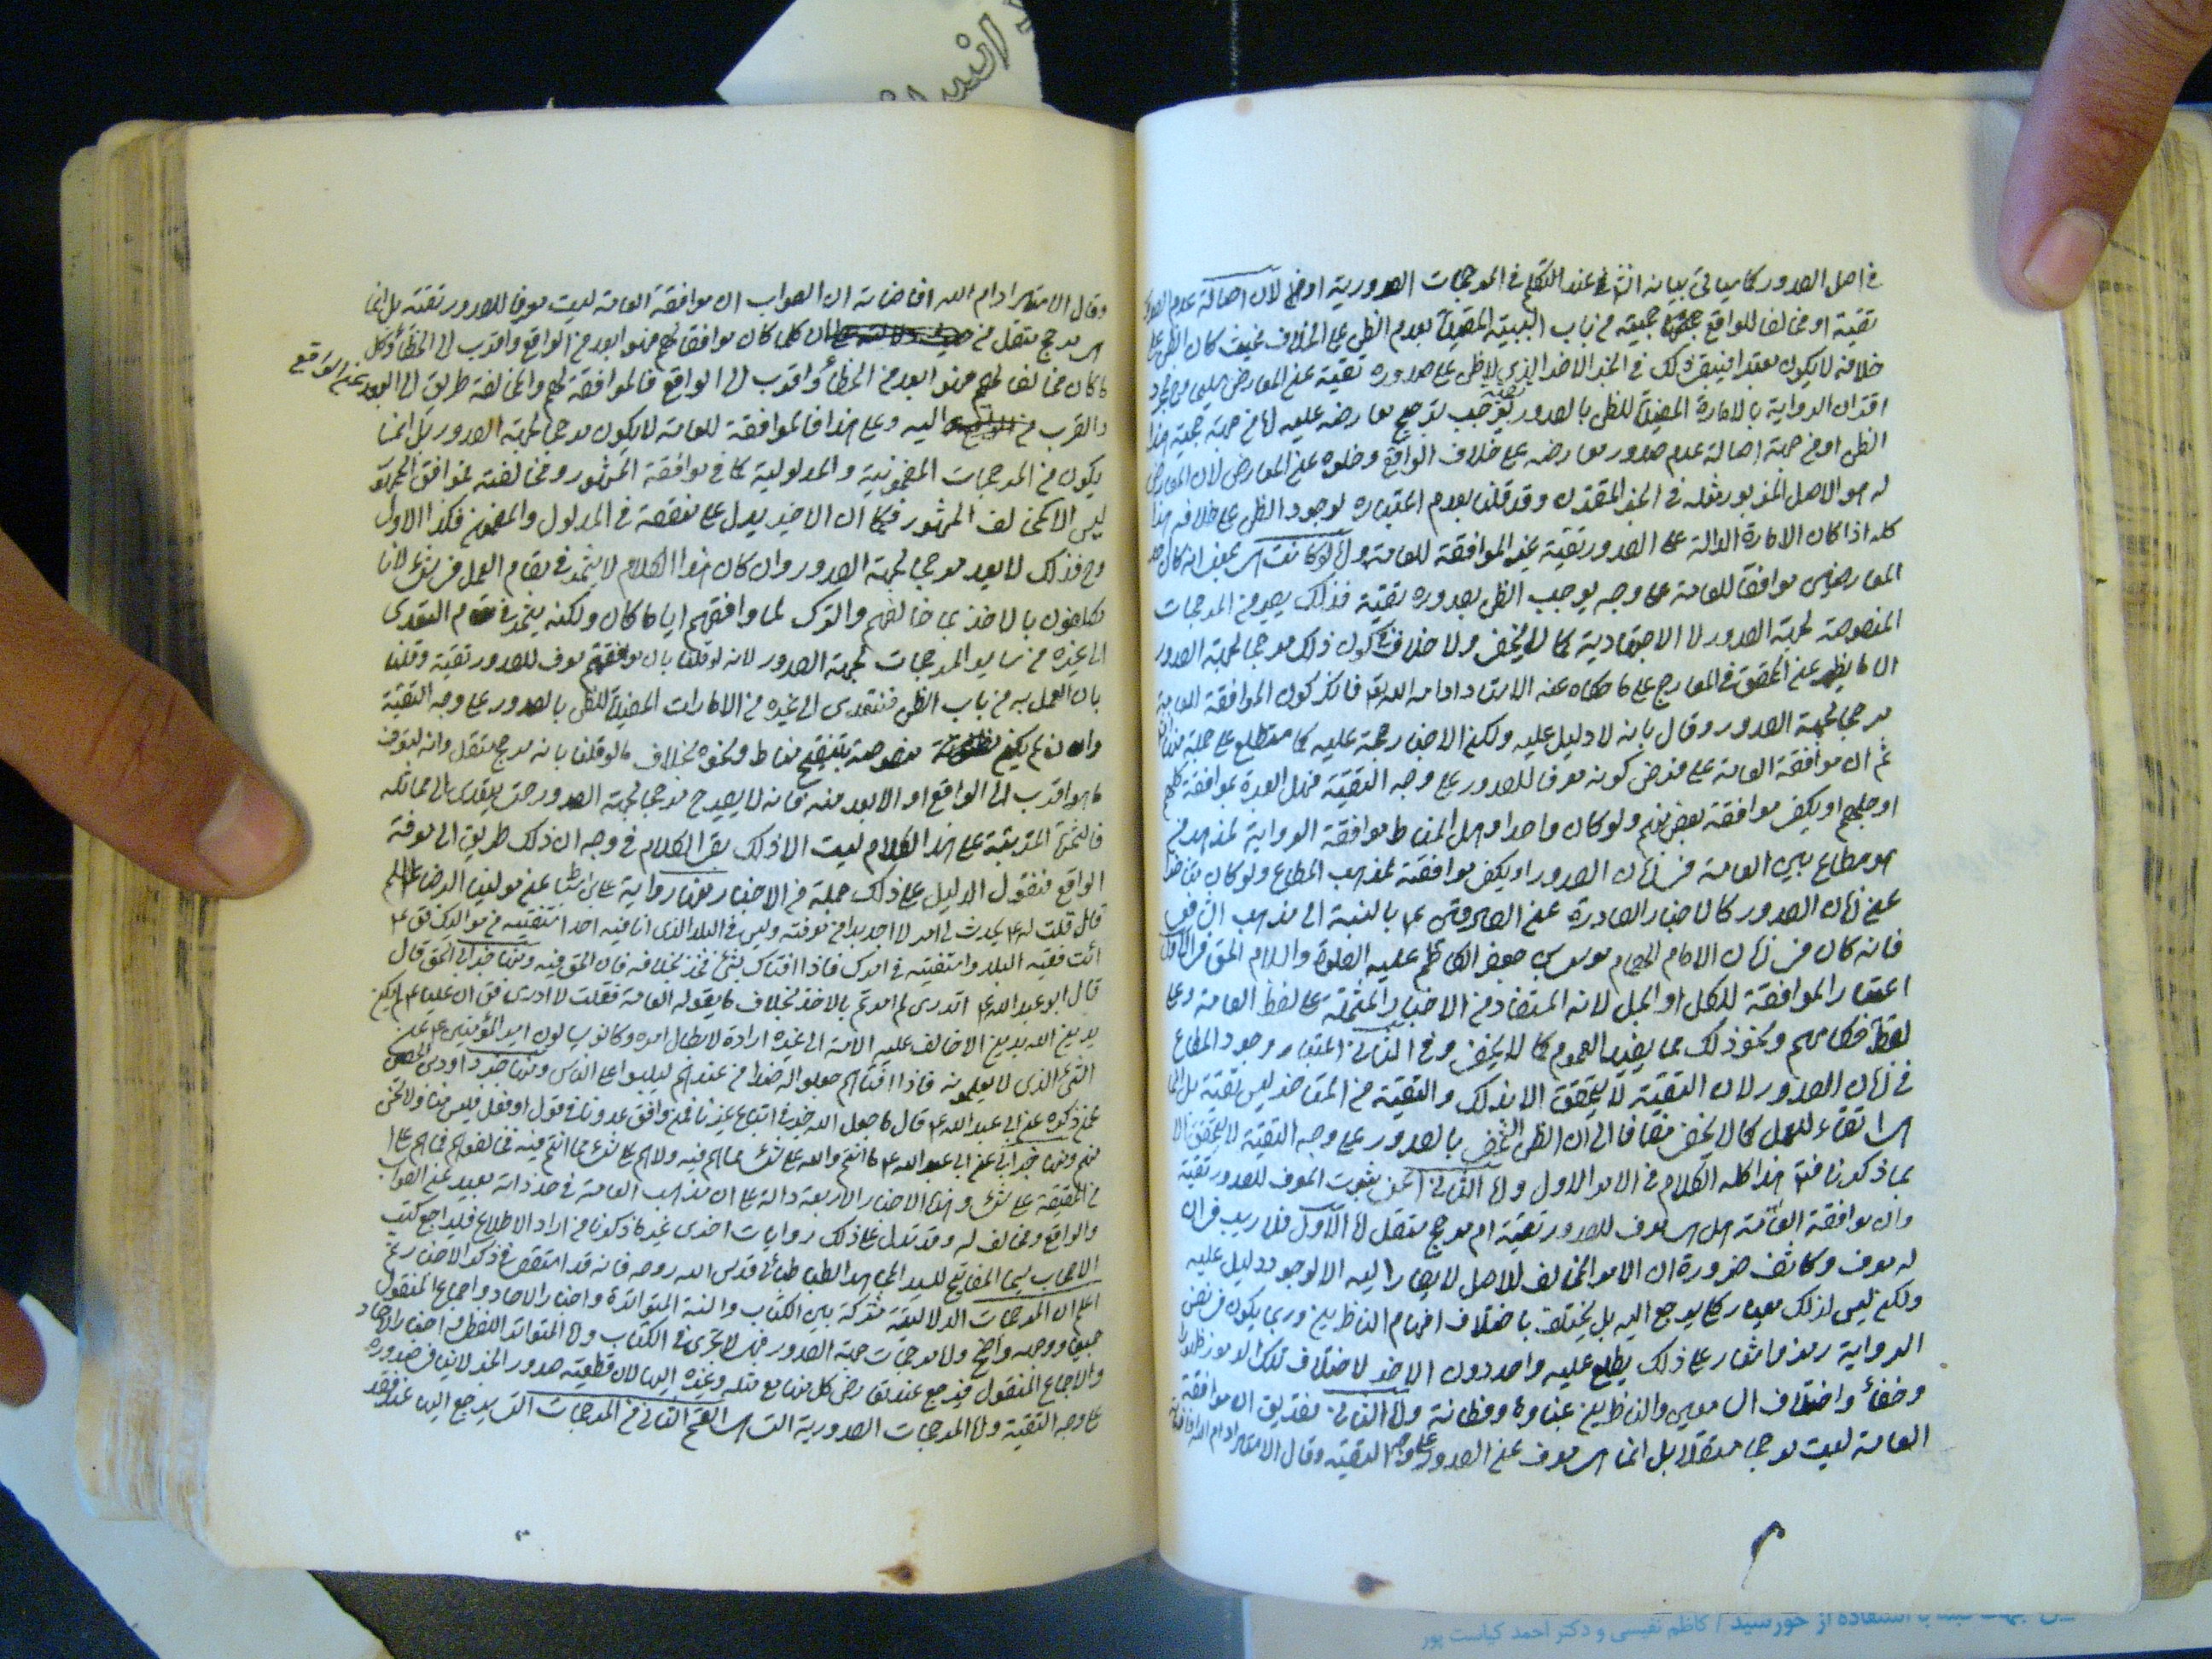 في اصل الصدور كما سياتي بيانه انش عند التكلم في المرجحات الصدورية اوفى لان اصالة عدم الصدور
تقية او مخالفا للواقع حجيته من باب السببية المقيدة بعدم الظن على الخلاف فحيث كان الظن على
خلافه لا يكون معتبرا فيبقى ذلك في الخبر الاخر الذي لا ظن على صدوره تقية عن المعارض سليما فمجرد
اقتران الرواية بالامارة المفيدة للظن بالصدور تقية يوجب ترجيح معارضه عليه لا من جهة حجية هذا
الظن او من جهة اصالة عدم صدور معارضه على خلاف الواقع وخلوه عن المعارض لان المعارض
له هو الاصل المزبور مثله في الخبر المقترن وقد قلنا بعدم اعتباره لوجود الظن على خلافه هذا
كله اذا كان الامارة الدالة على الصدور تقية غير الموافقة للعامة ولو كانت هي بمعنى انه كان احد
المعارضين موافقا للعامة على وجه يوجب الظن بصدوره تقية فذلك يصير من المرجحات
المنصوصة لجهة الصدور لا الاجتهادية كما لا يخفى ولا خلاف في كون ذلك مرجحا لجهة الصدور
الا ما يظهر عن المحقق في المعارج على ما حكاه عنه الاستاد ادامه الله بقاه فانكر كون الموافقة للعامة
مرجحا لجهة الصدور وقال بانه لا دليل عليه ولكن الاخبار حجة عليه كما ستطلع على جملة منها
ثم ان موافقة العامة على فرض كونه معرفا للصدور على وجه التقية فهل العبرة بموافقة كلهم
او جلهم او يكفي موافقة بعض منهم ولو كان واحدا وهل المناط موافقة الرواية لمذهب من
هو مطاع بين العامة في زمان الصدور او يكفي موافقة لمذهب المطاع ولو كان متاخرا
عن زمان الصدور كالاخبار الصادرة عن الصادقين ع بالنسبة الى مذهب الشافعي
فانه كان في زمان الامام الهمام موسى بن جعفر الكاظم عليه الصلوة والسلام الحق في الاول
اعتبار الموافقة للكل او الجل لانه المستفاد من الاخبار المشتملة على لفظ العامة وعلى
لفظ حكامهم ونحو ذلك مما يفيد العموم كما لا يخفى وفي الثاني اعتبار وجود المطاع
في زمان الصدور لان التقية لا يتحقق الا بذلك والتقية من المتاخر ليس تقية بل انما
هي اتقاء للعمل كما لا يخفى مضافا الى ان الظن الشخصي بالصدور على وجه التقية لا يتحقق الا
بما ذكرنا فتم هذا كله الكلام في الامر الاول واما الثاني اعني ثبوت المعرف للصدور تقية
وان موافقة العامة هل هي معرف للصدور تقية ام مرجح مستقل اما الاول فلا ريب في ان
له معرف وكاشف ضرورة ان الامر المخالف للاصل لا يصار اليه الا لوجود دليل عليه
ولكن ليس لذلك معيار كلي يرجع اليه بل يختلف باختلاف افهام الناظرين وربما يكون في نفس
الرواية رمز واشار على ذلك يطلع عليه واحد دون الاخر لاختلاف تلك الامور ظهورا
وخفاء واختلاف السامعين والناظرين غباوة وفطانة واما الثاني فقد يق ان موافقة
العامة ليست مرجحا مستقلا بل انما هي معرف عن الصدور على وجه التقية وقال الاستاد ادام الله افاضاته
وقال الاستاد ادام الله افاضاته ان الصواب ان موافقة العامة ليست معرفا للصدور تقية بل انما
هي مرجح مستقل من ان كلما كان موافقا لهم فهو ابعد من الواقع واقرب الى الخطاء وكل
ما كان مخالفا لهم فهو ابعد من الخطاء واقرب الى الواقع فالموافقة لهم والمخالفة طريق الى البعد عن الواقع
والقرب اليه وعلى هذا فالموافقة للعامة لا يكون مرجحا لجهة الصدور بل انما
يكون من المرجحات المضمونية والمدلولية كما في موافقة المشهور ومخالفته فموافق الشهرة
ليس الا كمخالف المشهور فكما ان الاخير يدل على منقصة في المدلول والمضمون فكذا الاول
وح فذلك لا يعد مرجحا لجهة الصدور وان كان هذا الكلام لا يثمر في مقام العمل في شيء لانا
مكلفون بالاخذ بما خالفهم والترك لما وافقهم ايا ما كان ولكنه يثمر في مقام التعدي
الى غيره من ساير المرجحات لجهة الصدور لانه لو قلنا بان موافقتهم معرف للصدور تقية وقلنا
بان العمل به من باب الظن فنتعدى الى غيره من الامارات المفيدة للظن بالصدور على وجه التقية
وان لم يكن منصوصة بتنقيح مناط ونحوه بخلاف ما لو قلنا بانه مرجح مستقل وانه لتعرف
ما هو اقرب الى الواقع او الابعد منه فانه لا يصير ح مرجحا لجهة الصدور حتى يتعدى الى مماثله
فالثمرة المترتبة على هذا الكلام ليست الا ذلك بقي الكلام في وجه ان ذلك طريق الى معرفة
الواقع فنقول الدليل على ذلك جملة من الاخبار منها رواية علي بن اسباط عن مولينا الرضا عليه السلام
قال قلت له ع يحدث لي امر لا اجد بدا من معرفته وليس في البلد الذي انا فيه احد استفتيه من مواليك فق ع
ائت فقيه البلد واستفتيه في امرك فاذا افتاك بشيء فخذ بخلافه فان الحق فيه ومنها خبر ابي اسحق قال
قال ابو عبد الله ع اتدري لم امرتم بالاخذ بخلاف ما يقوله العامة فقلت لا ادري فق ان عليا ع لم يكن
يدين الله بدين الا خالف عليه الامة الى غيره ارادة لابطال امره وكانوا يسالون امير المؤمنين ع عن
الشيء الذي لا يعلمونه فاذا افتاهم جعلوا له ضدا من عندهم ليلبسوا على الناس ومنها خبر داود بن الحصين
عمن ذكره عن ابي عبد الله ع قال ما جعل الله خيرة في اتباع غيرنا فمن وافق عدونا في قول او فعل فليس منا ولا نحن
منهم ومنها خبر ابي عن ابي عبد الله ع ما انتم والله على شيء مما هم فيه ولا هم على شيء مما انتم فيه فخالفوهم فما هم على
في الحقيقة على شيء وهذه الاخبار الاربعة دالة على ان مذهب العامة في حد ذاته بعيد عن الصواب
والواقع ومخالف له وقد تدل على ذلك روايات اخرى غير ما ذكرنا من اراد الاطلاع فليراجع كتب
الاصحاب سيما المفاتيح للسيد المجاهد الطباطبائي قدس الله روحه فانه قد استقصى في ذكر الاخبار ثم
اعلم ان المرجحات الدلالتية مشتركة بين الكتاب والسنة المتواترة واخبار الاحاد واجماع المنقول
جميعا ووجهه واضح واما مرجحات جهة الصدور فهي لا تجري في الكتاب واما المتواتر اللفظي من اخبار الاحاد
والاجماع المنقول فيرجع عند تعارض كل منها مع مثله وغيره اليها لان قطعية صدور الخبر لا ينافي صدوره
على وجه التقية واما المرجحات الصدورية التي هي القسم الثاني من المرجحات التي يرجع اليها عند فقد